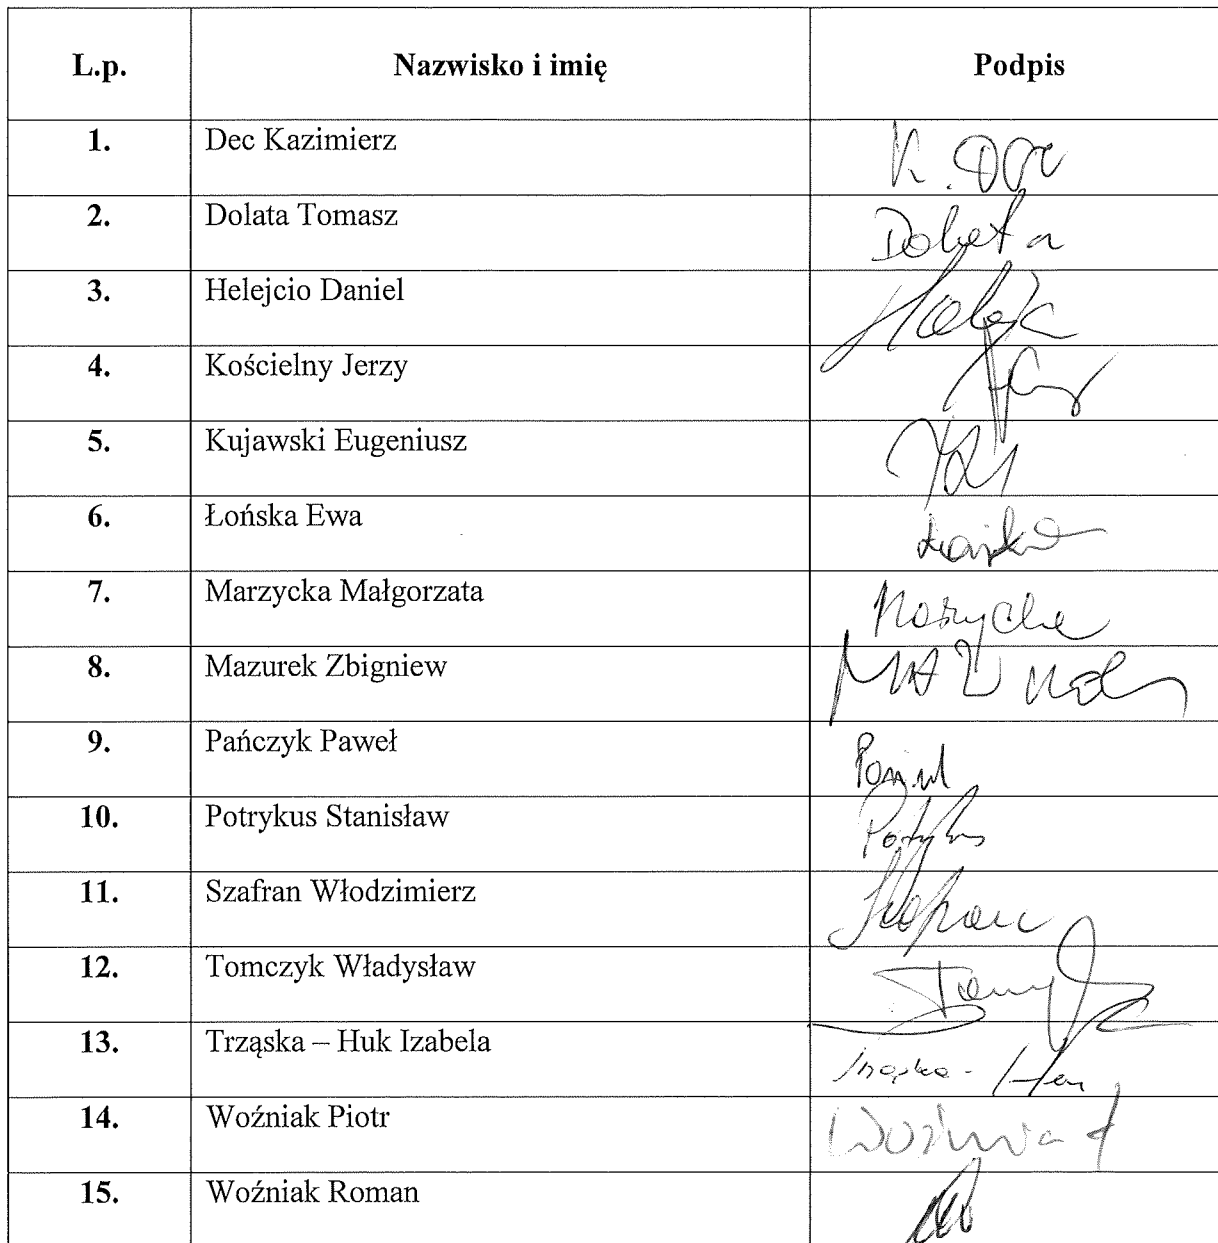 L.p. Nazwisko i imię Podpis
1. Dec Kazimierz K. Dec
2. Dolata Tomasz Dolata
3. Helejcio Daniel
4. Kościelny Jerzy
5. Kujawski Eugeniusz
6. Łońska Ewa Łońska
7. Marzycka Małgorzata Marzycka
8. Mazurek Zbigniew
9. Pańczyk Paweł
10. Potrykus Stanisław Potrykus
11. Szafran Włodzimierz
12. Tomczyk Władysław
13. Trząska – Huk Izabela
14. Woźniak Piotr Woźniak
15. Woźniak Roman